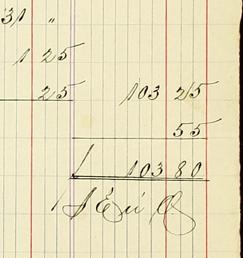 31 "
1 25
25 103 25
55
103 80